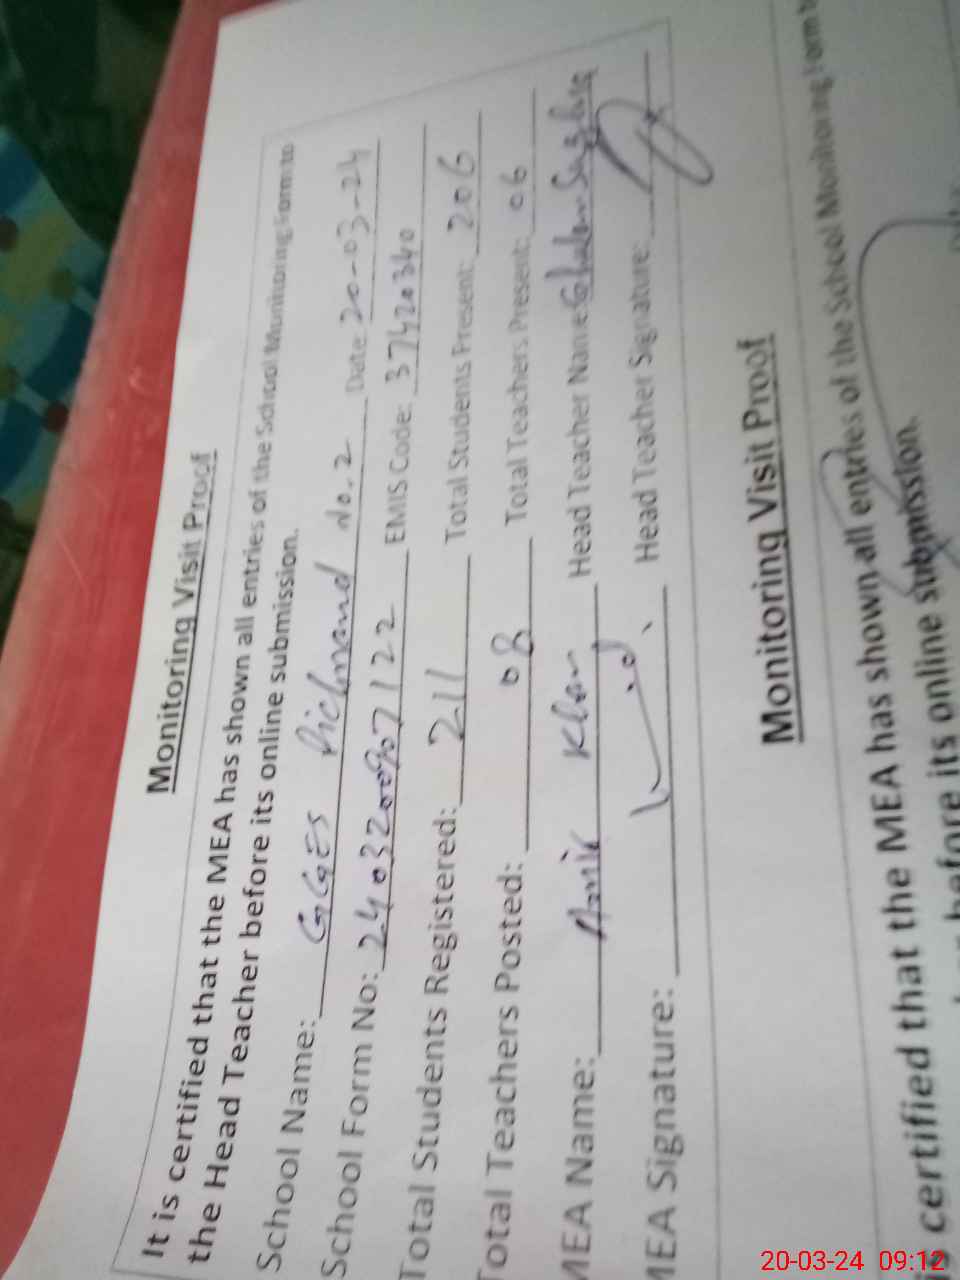 Monitoring Visit Proof
It is certified that the MEA has shown all entries of the School Monitoring Form to
the Head Teacher before its online submission.
School Name: GGES Pichnand No. 2 Date: 20-03-24
School Form No: EMIS Code: 37420340
Total Students Registered: 211 Total Students Present: 206
Total Teachers Posted: 08 Total Teachers Present: 06
MEA Name: Khan Head Teacher Name: Ghulam Sughra
MEA Signature: Head Teacher Signature:
Monitoring Visit Proof
is certified that the MEA has shown all entries of the School Monitoring Form
before its online submission.
20-03-24 09:12